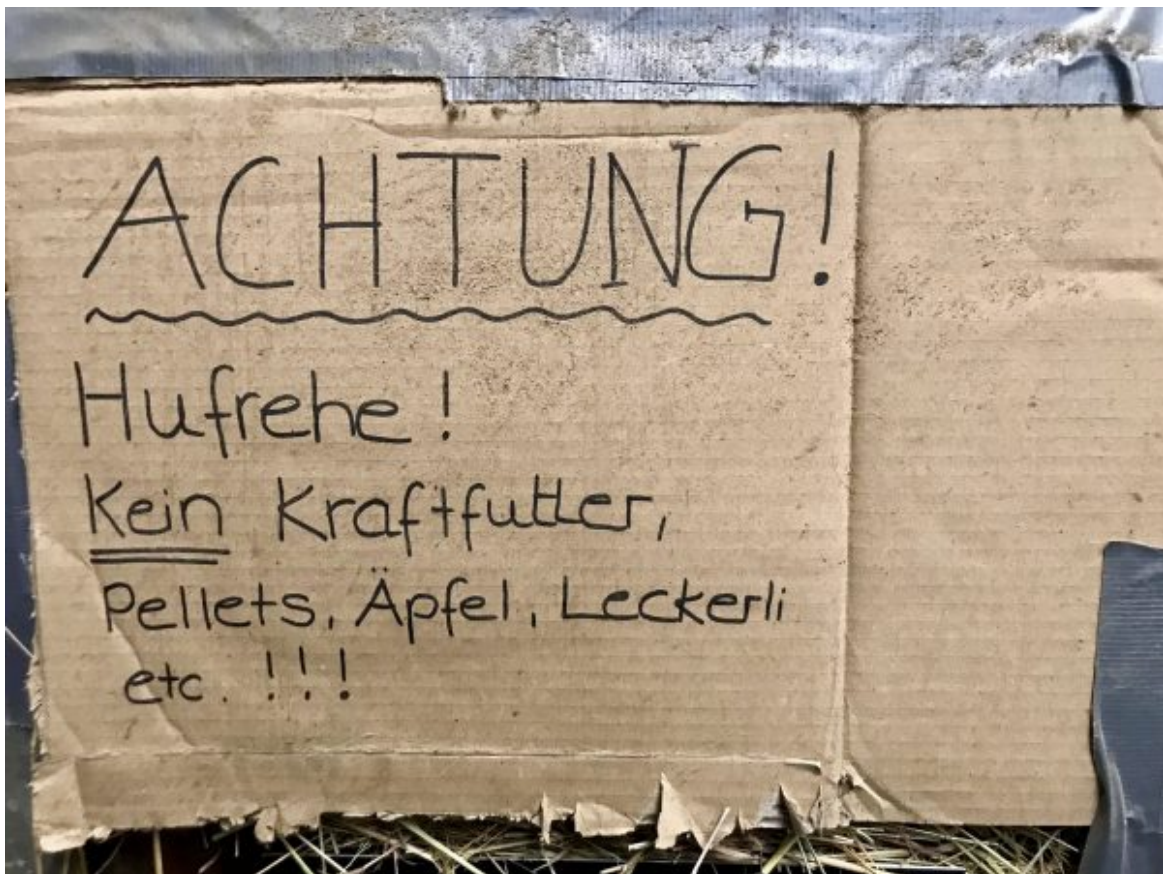 ACHTUNG!
Hufrehe!
Kein Kraftfutter,
Pellets, Äpfel, Leckerli
etc. !!!